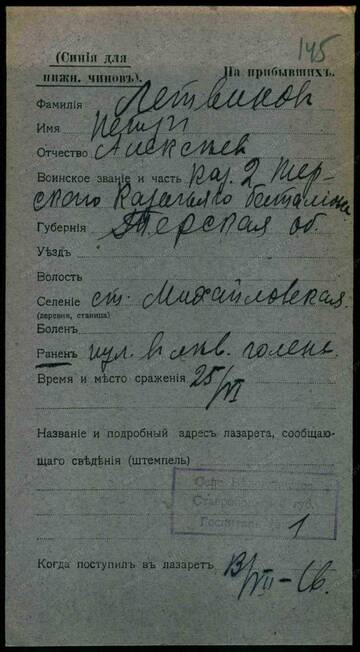 145
(Синія для
нижн. чиновъ).
На прибывшихъ.
Фамилія Летвинов
Имя Петр
Отчество Алексѣев
Воинское званіе и часть каз. 2 Тер-
ского Казачьяго баталіона
Губернія Терская об.
Уѣздъ
Волость
Селеніе ст. Михайловская.
(деревня, станица)
Боленъ
Раненъ пул. в лев. голень.
Время и мѣсто сраженія 25/VI
Названіе и подробный адресъ лазарета, сообщаю-
щаго свѣдѣнія (штемпель)
1
Когда поступилъ въ лазаретъ 13/VII-16.